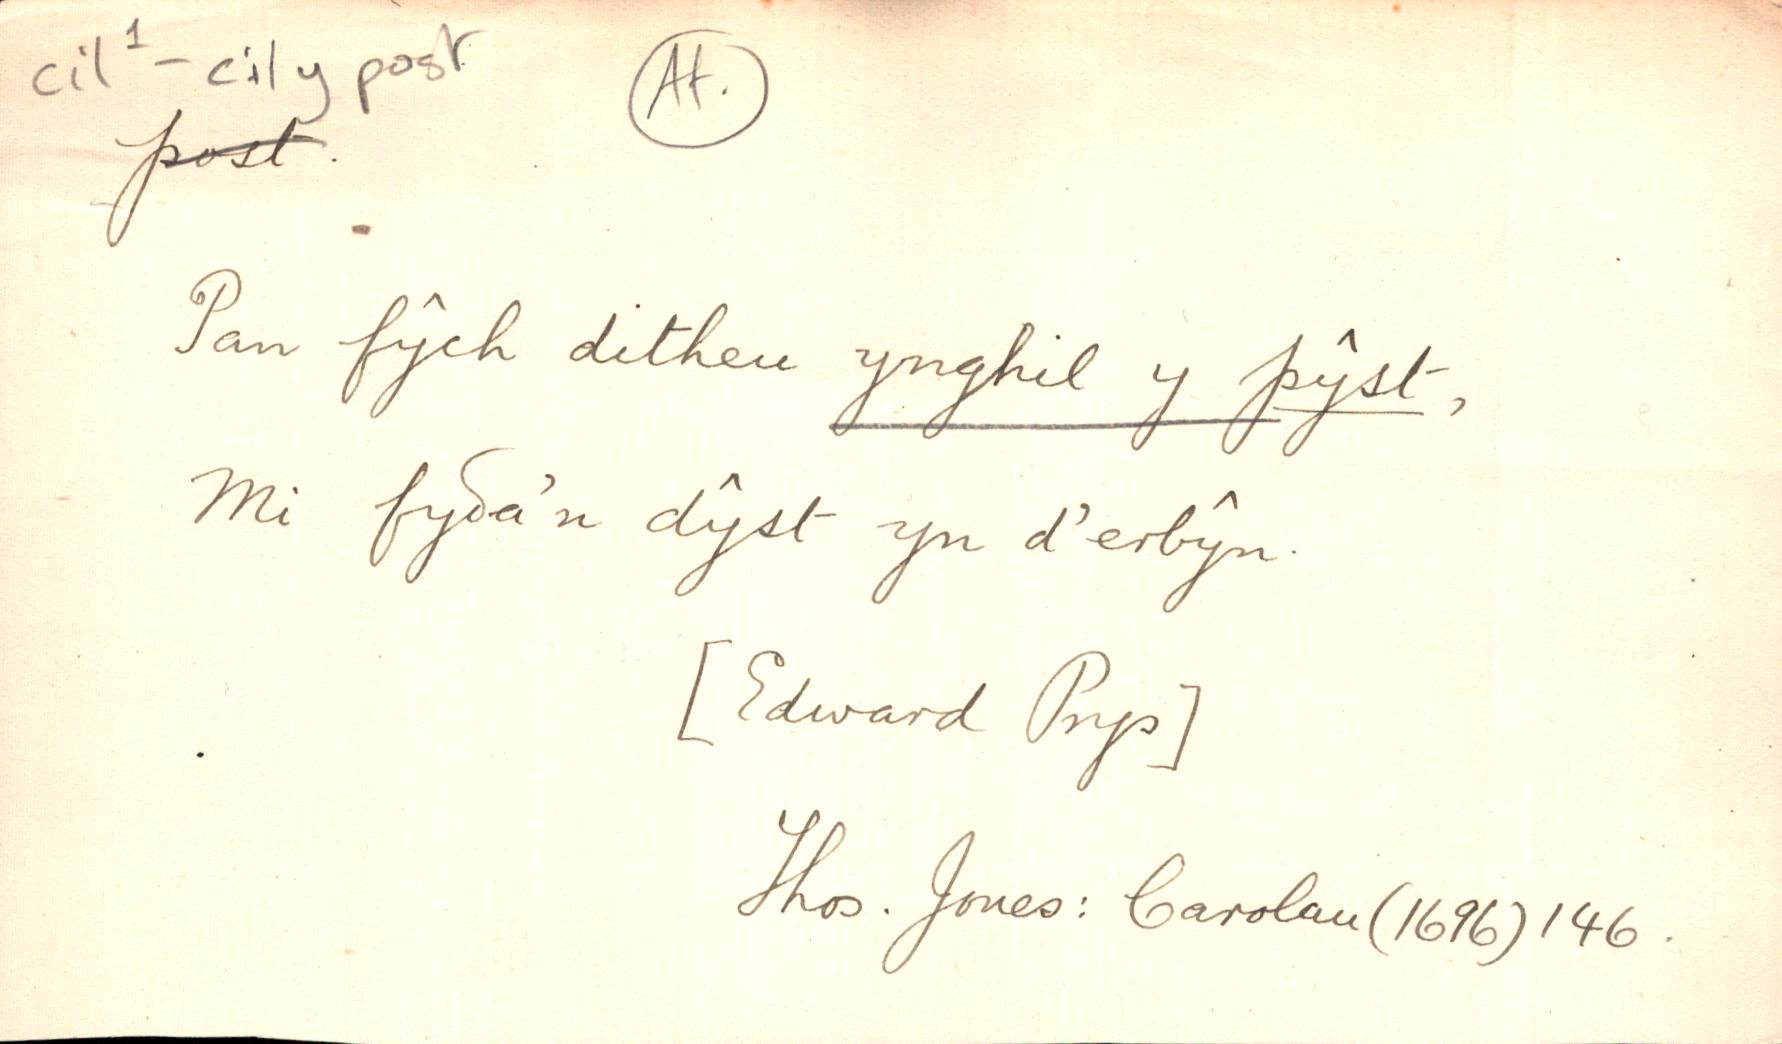 cil¹ - cil y post
At.
post.
Pan fŷch ditheu ynghil y pŷst,
Mi fyδa'n dŷst yn d'erbŷn.
[Edward Prys]
Thos. Jones: Carolau (1696) 146.